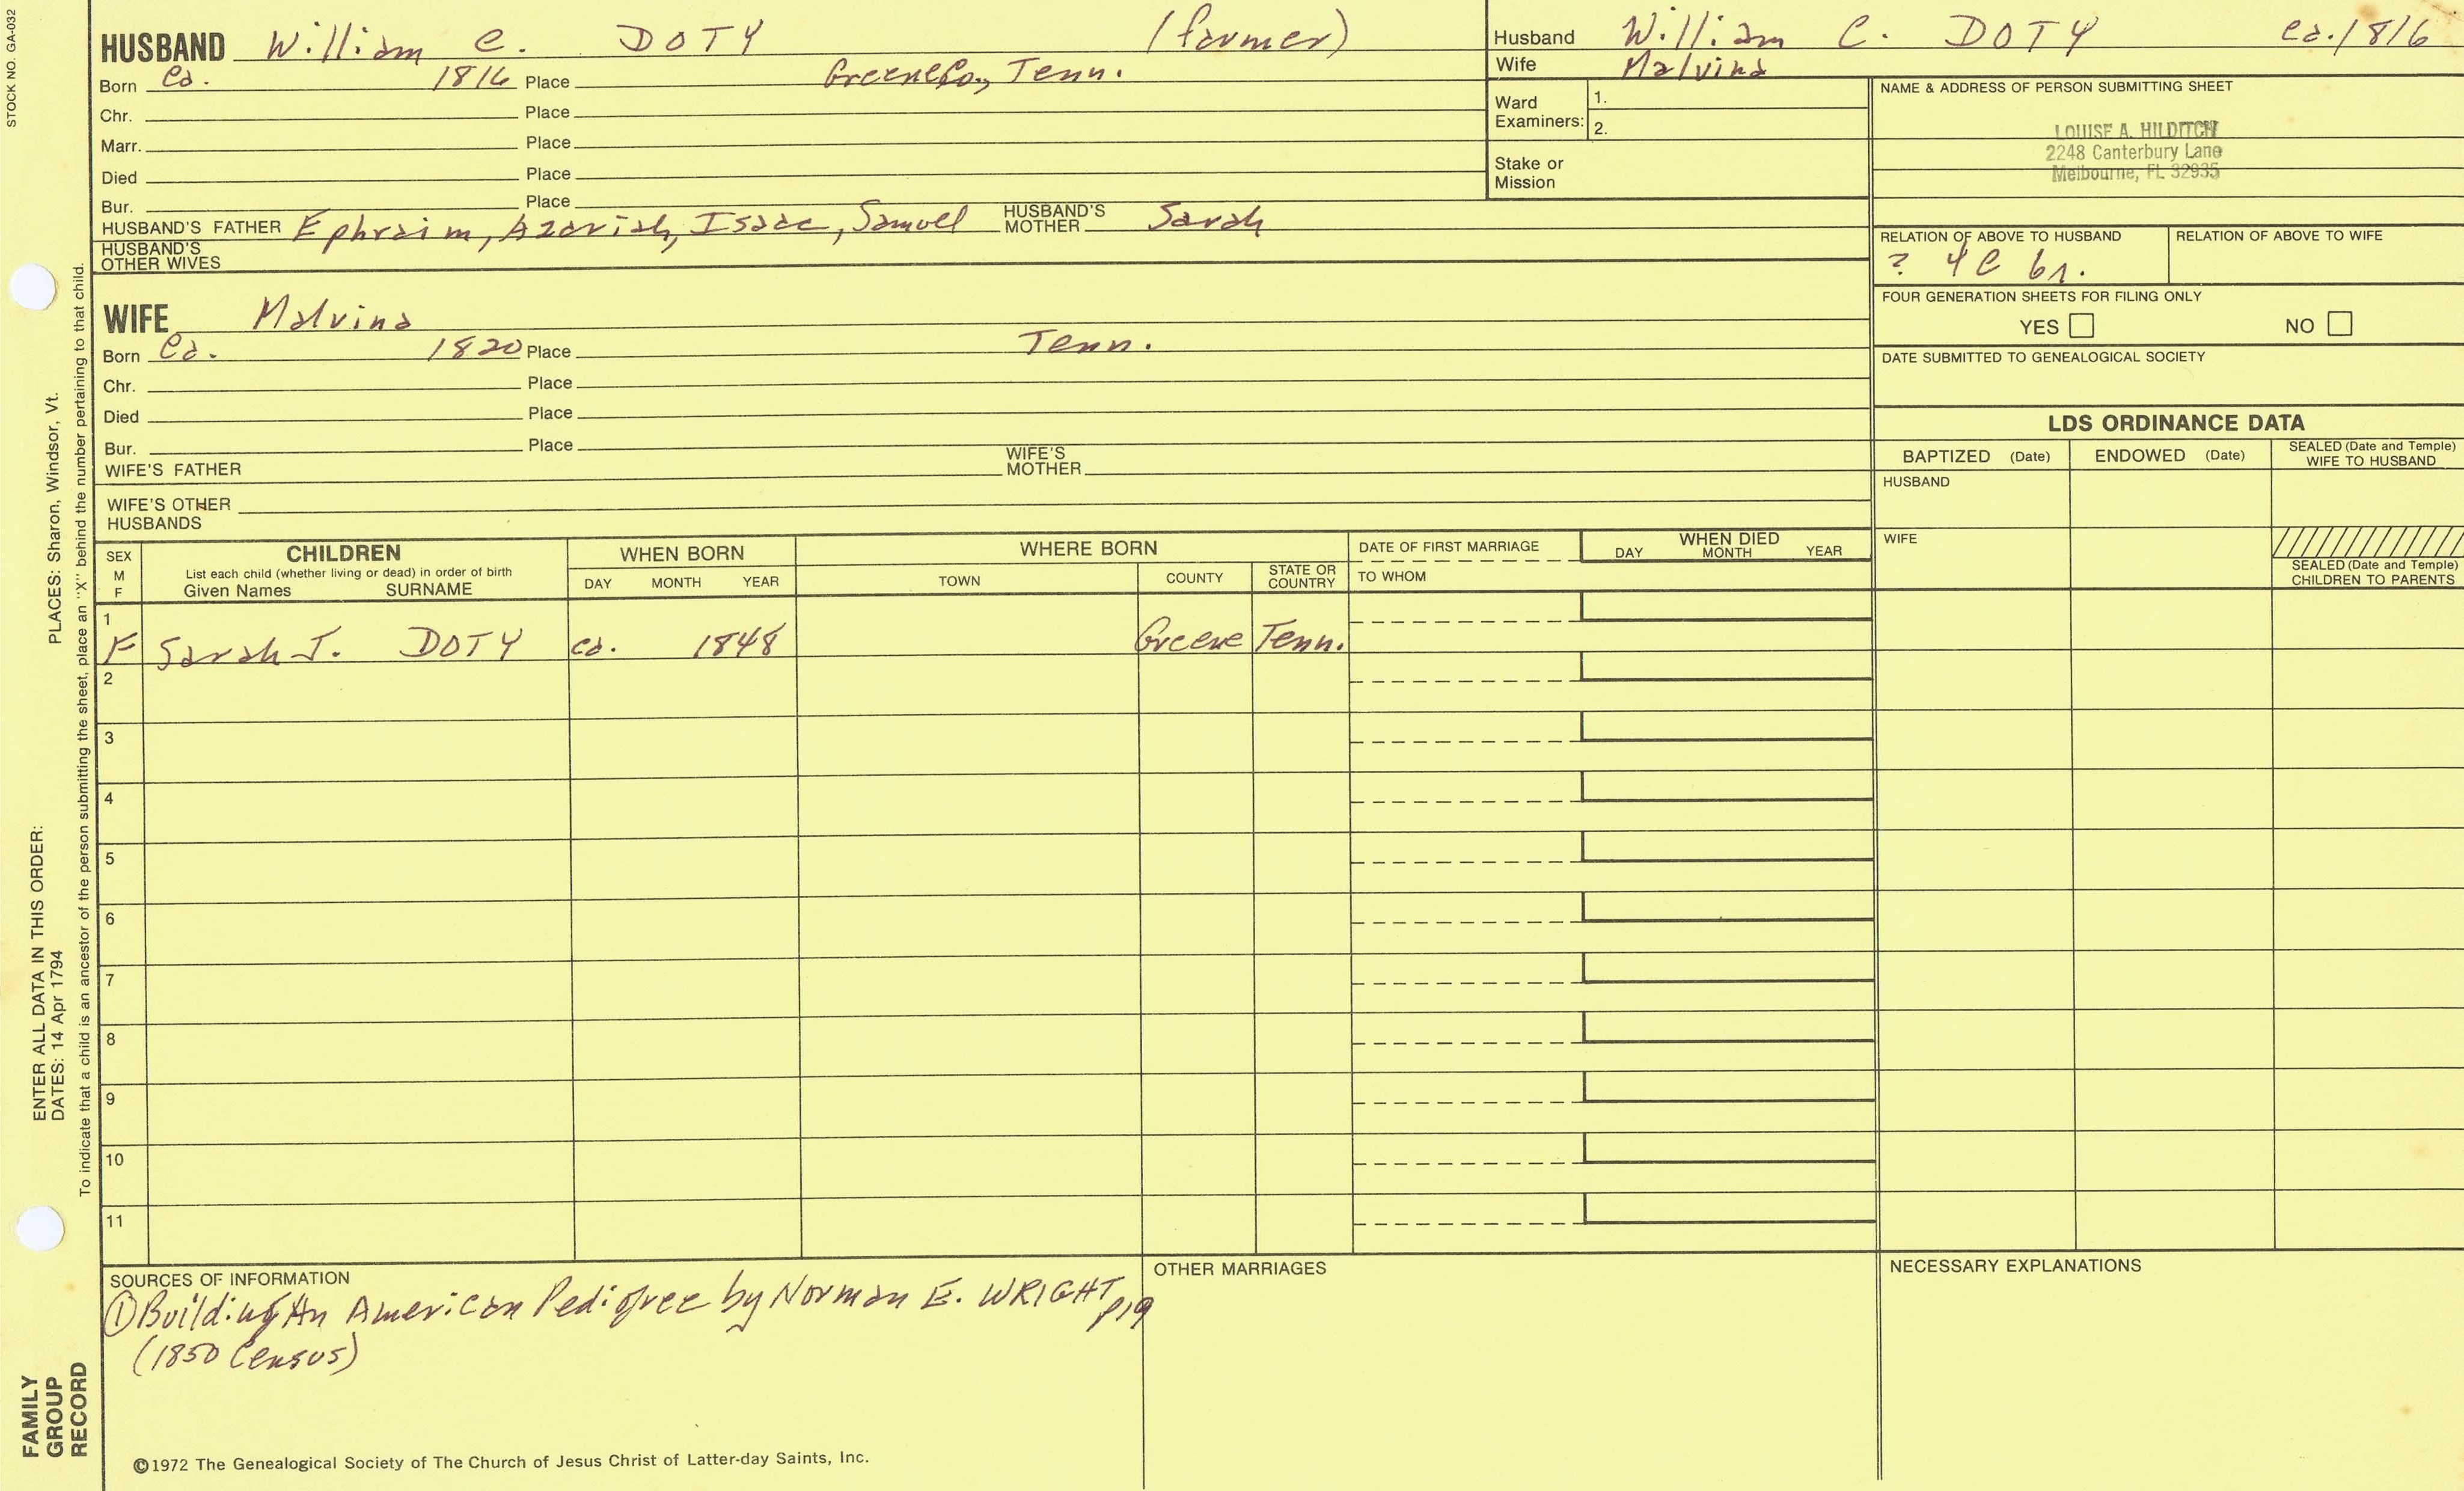 STOCK NO. GA-032
HUSBAND William C. DOTY (farmer)
Born Ca. 1816 Place Greene Co., Tenn.
Chr. Place
Marr. Place
Died Place
Bur. Place
HUSBAND'S FATHER Ephraim, Azariah, Isaac, Samuel HUSBAND'S MOTHER Sarah
HUSBAND'S OTHER WIVES
WIFE Malvina
Born Ca. 1820 Place Tenn.
Chr. Place
Died Place
Bur. Place
WIFE'S FATHER WIFE'S MOTHER
WIFE'S OTHER HUSBANDS
Husband William C. DOTY Ca. 1816
Wife Malvina
Ward Examiners: 1.
2.
Stake or Mission
NAME & ADDRESS OF PERSON SUBMITTING SHEET
LOUISE A. HILDITCH
2248 Canterbury Lane
Melbourne, FL 32935
RELATION OF ABOVE TO HUSBAND RELATION OF ABOVE TO WIFE
? 4C br.
FOUR GENERATION SHEETS FOR FILING ONLY
YES NO
DATE SUBMITTED TO GENEALOGICAL SOCIETY
LDS ORDINANCE DATA
BAPTIZED (Date) ENDOWED (Date) SEALED (Date and Temple) WIFE TO HUSBAND
HUSBAND
WIFE
SEALED (Date and Temple) CHILDREN TO PARENTS
SEX M F
CHILDREN
List each child (whether living or dead) in order of birth
Given Names SURNAME
WHEN BORN
DAY MONTH YEAR
WHERE BORN
TOWN COUNTY STATE OR COUNTRY
DATE OF FIRST MARRIAGE
TO WHOM
WHEN DIED
DAY MONTH YEAR
1
F Sarah J. DOTY ca. 1848 Greene Tenn.
2
3
4
5
6
7
8
9
10
11
SOURCES OF INFORMATION
① Building An American Pedigree by Norman E. WRIGHT p19
(1850 Census)
OTHER MARRIAGES
NECESSARY EXPLANATIONS
©1972 The Genealogical Society of The Church of Jesus Christ of Latter-day Saints, Inc.
ENTER ALL DATA IN THIS ORDER:
DATES: 14 Apr 1794 PLACES: Sharon, Windsor, Vt.
To indicate that a child is an ancestor of the person submitting the sheet, place an "X" behind the number pertaining to that child.
FAMILY
GROUP
RECORD